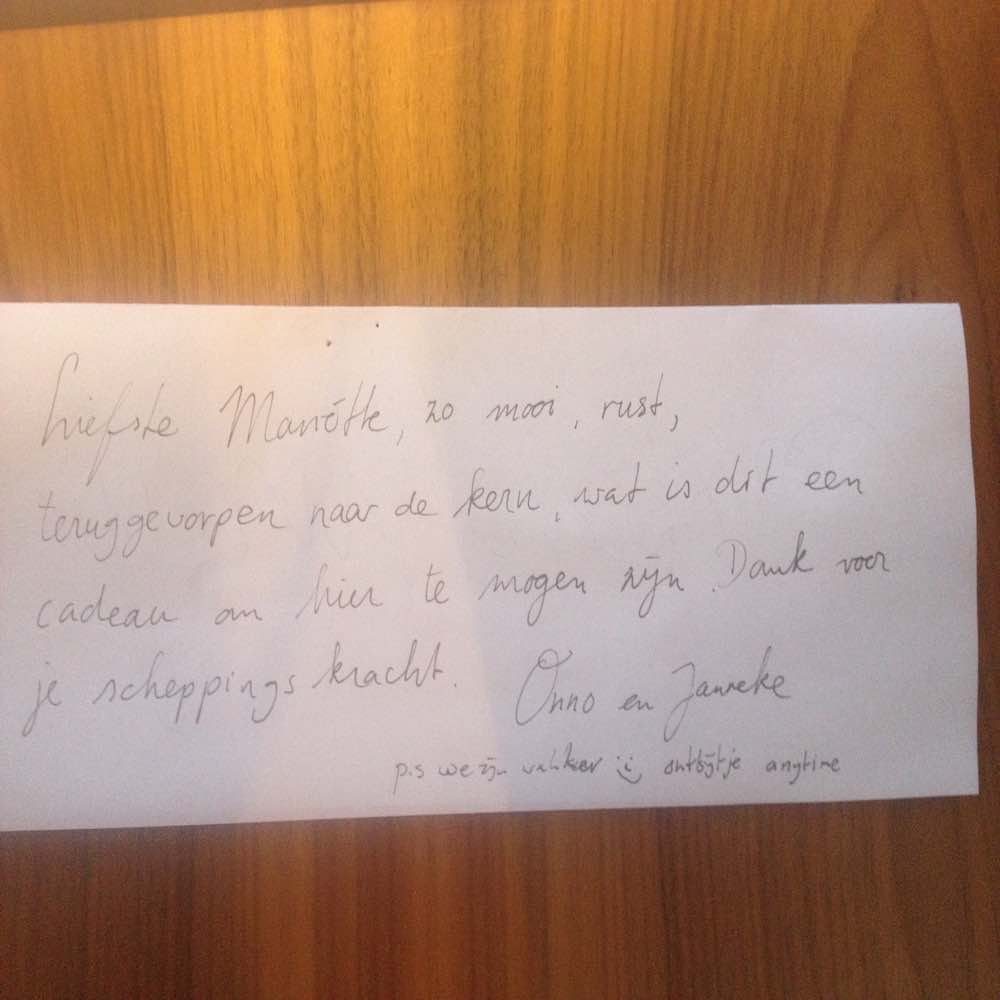 Liefste Mariëtte, zo mooi, rust,
teruggeworpen naar de kern, wat is dit een
cadeau om hier te mogen zijn. Dank voor
je scheppingskracht. Onno en Janneke
p.s we zijn wakker :) ontbijtje anytime